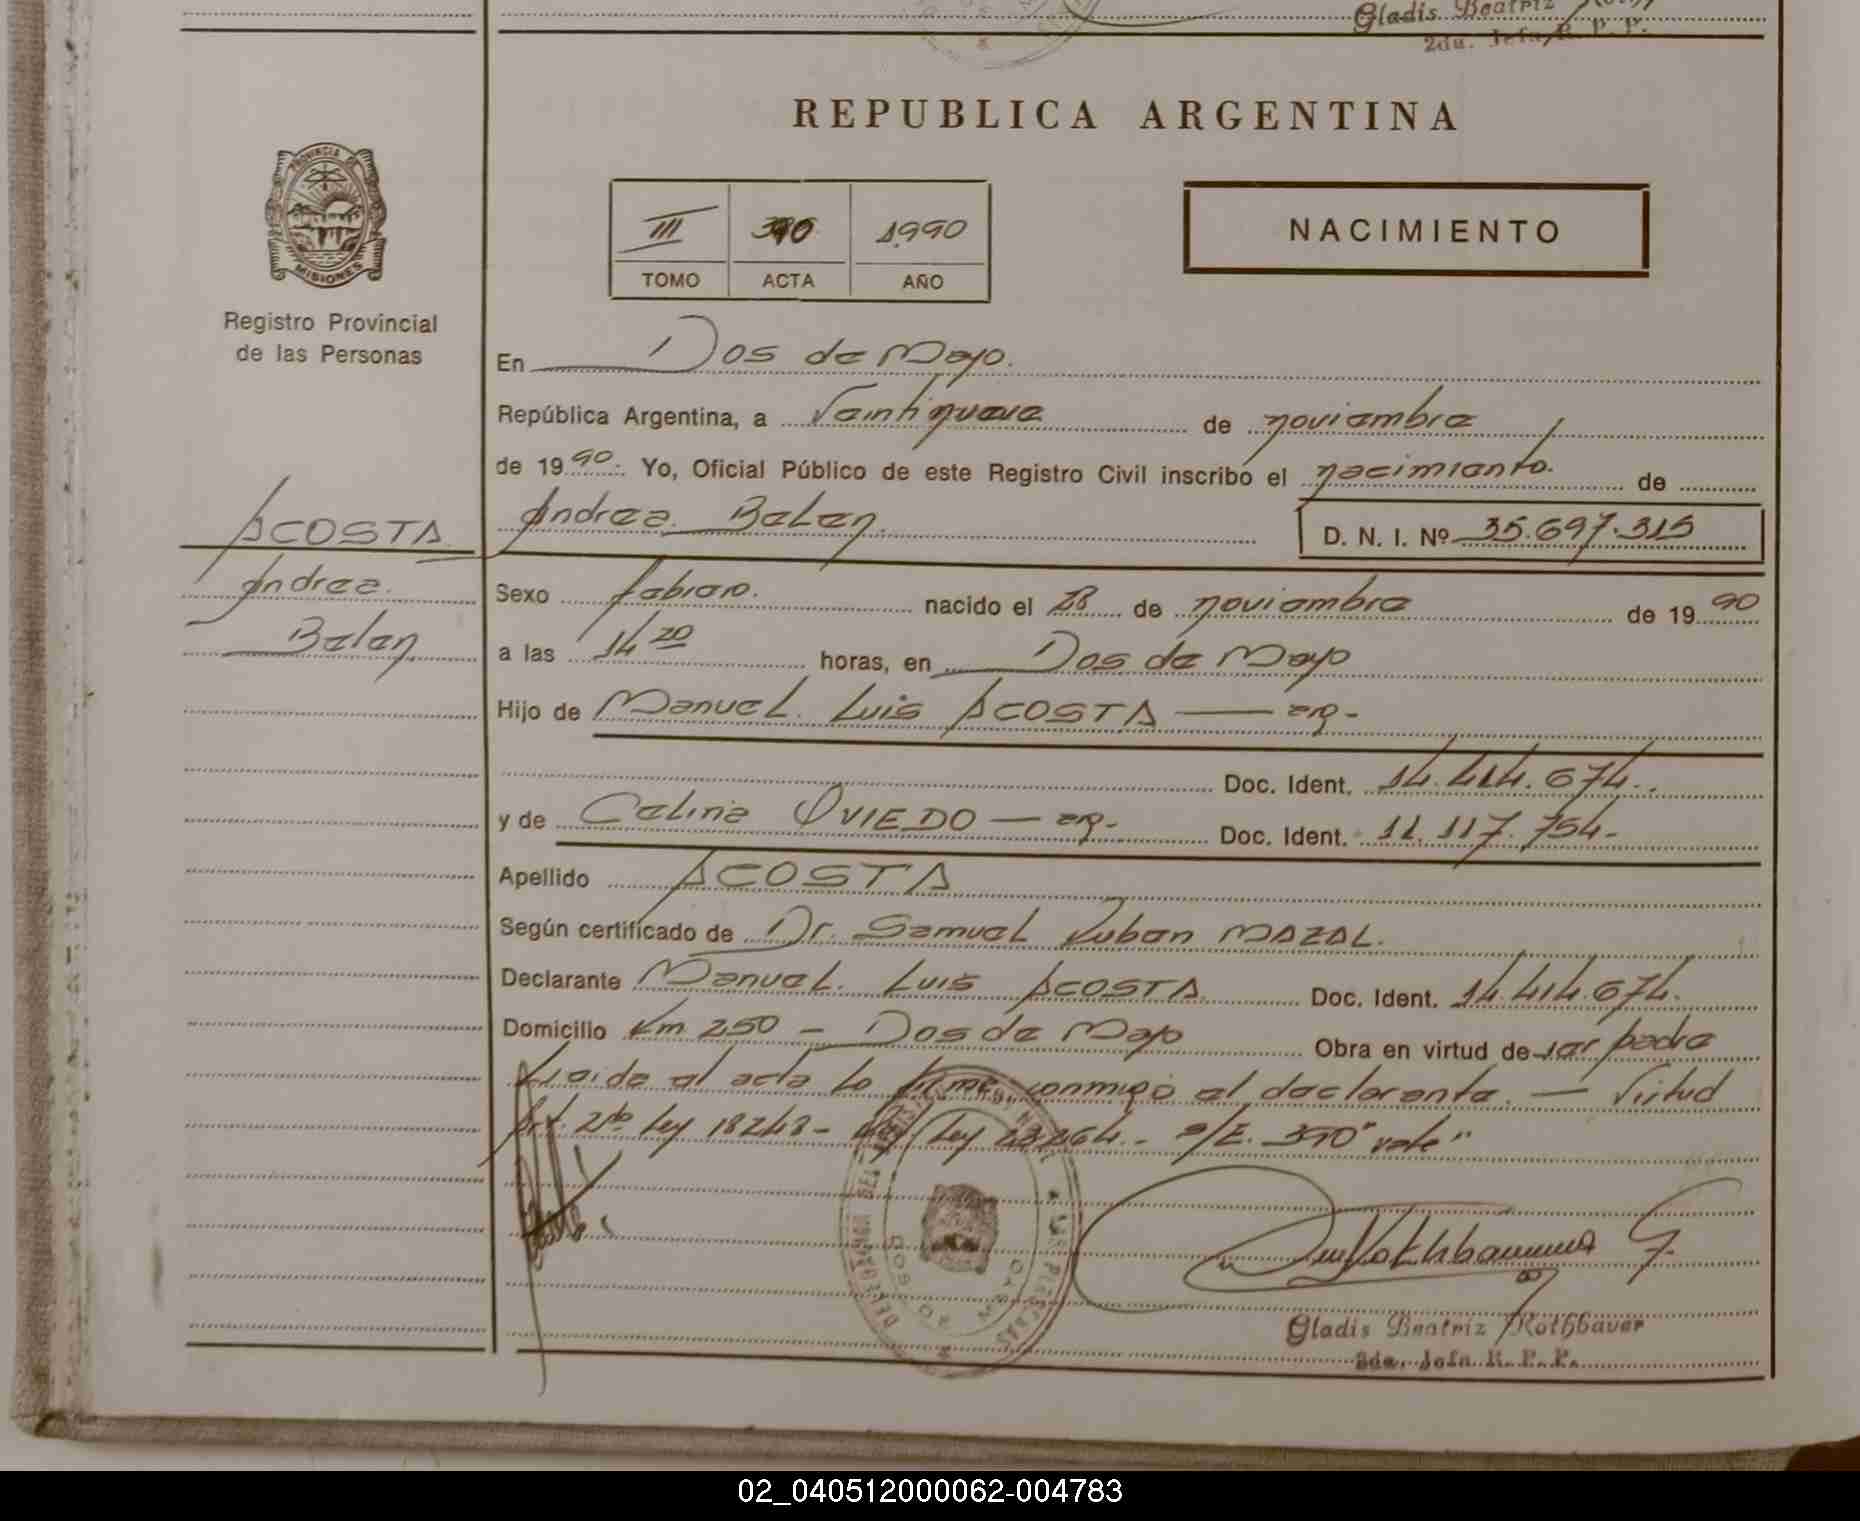 Gladis Beatriz
2da. Jefa R. P. P.
REPUBLICA ARGENTINA
PROVINCIA DE
MISIONES
Registro Provincial
de las Personas
III 390 1990
TOMO ACTA AÑO
NACIMIENTO
En Dos de Mayo.
República Argentina, a Veintinueve de noviembre
de 1990. Yo, Oficial Público de este Registro Civil inscribo el nacimiento. de
Andrea Belen
D. N. I. Nº 35.697.315
ACOSTA
Andrea
Belen
Sexo nacido el 28 de noviembre de 1990
a las 14 20 horas, en Dos de Mayo
Hijo de Manuel Luis ACOSTA — arg-
Doc. Ident. 14.414.674.
y de Celina OVIEDO — arg- Doc. Ident. 11.117.754-
Apellido ACOSTA
Según certificado de Dr. Samuel Ruben MAZAL.
Declarante Manuel Luis ACOSTA Doc. Ident. 14.414.674.
Domicilio Km 250 - Dos de Mayo Obra en virtud de ser padre
Leida el acta la firma conmigo el declarante. — Virtud
Art. 2do Ley 18248- Ley 23264.- s/E. 390 "vale"
DOS DE MAYO
Gladis Beatriz Rothbaver
2da. Jefa R. P. P.
02_040512000062-004783